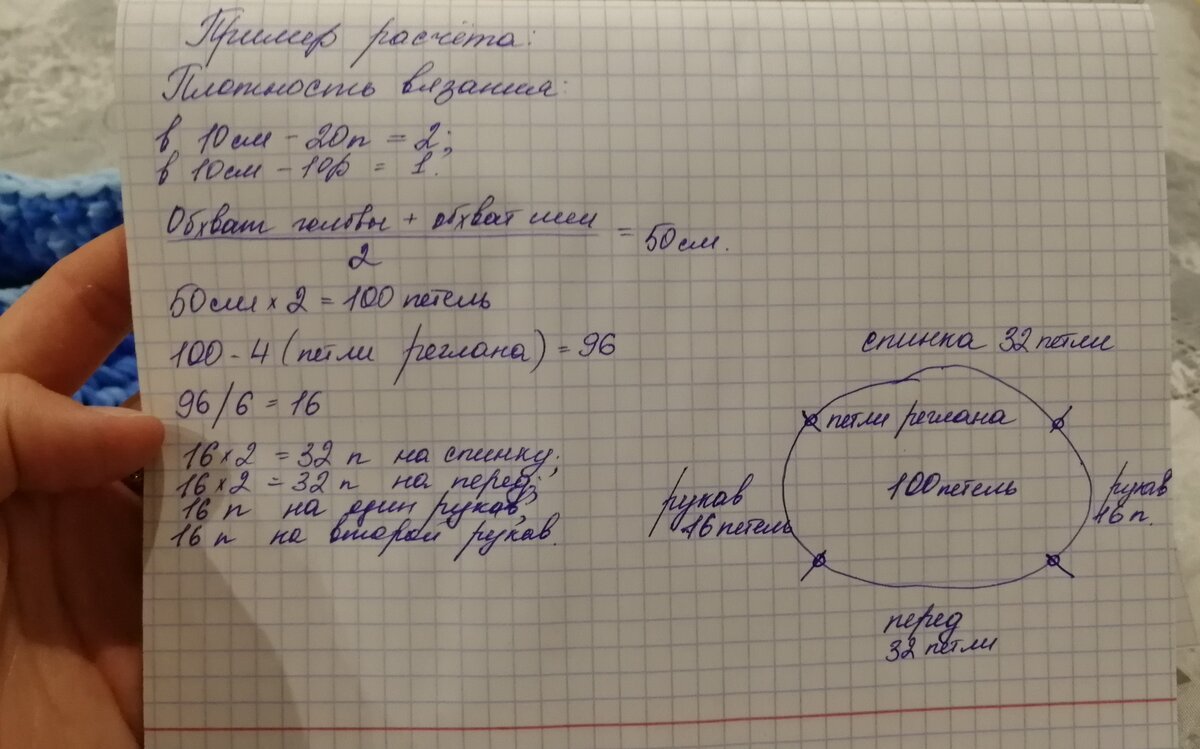 Пример расчёта:
Плотность вязания:
в 10см - 20п = 2;
в 10см - 10р = 1.
Обхват головы + обхват шеи
2
= 50см.
50см х 2 = 100 петель
100 - 4 (петли реглана) = 96
96/6 = 16
16 х 2 = 32 п на спинку;
16 х 2 = 32 п на перед;
16 п на один рукав;
16 п на второй рукав.
спинка 32 петли
петли реглана
100 петель
рукав
16 петель
рукав
16 п.
перед
32 петли